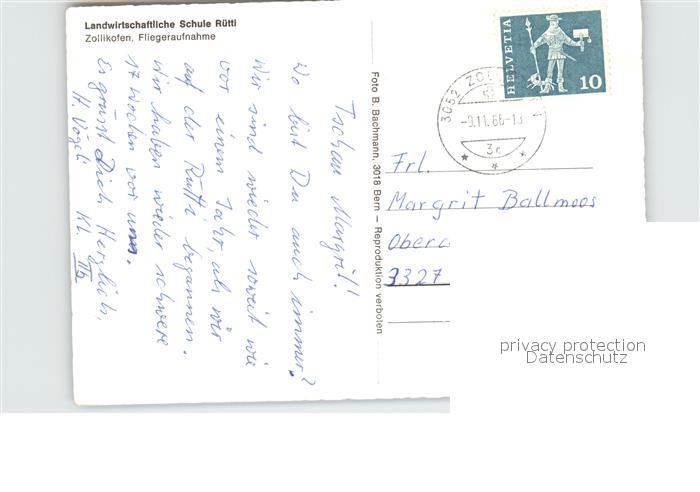 Landwirtschaftliche Schule Rütti
Zollikofen, Fliegeraufnahme
Tschau Margrit!
Wo bist Du auch immer?
Wir sind wieder soweit wie
vor einem Jahr, als wir
auf der Rütti begannen.
Wir haben wieder schwere
17 Wochen vor uns.
Es grüsst Dich Herzlich,
H. Vögeli Kl. IIb
Foto B. Bachmann, 3018 Bern — Reproduktion verboten
HELVETIA
10
3052 ZOL
-9.11.66-1
3c
Frl.
Margrit Ballmoos
Ober
3327
privacy protection
Datenschutz